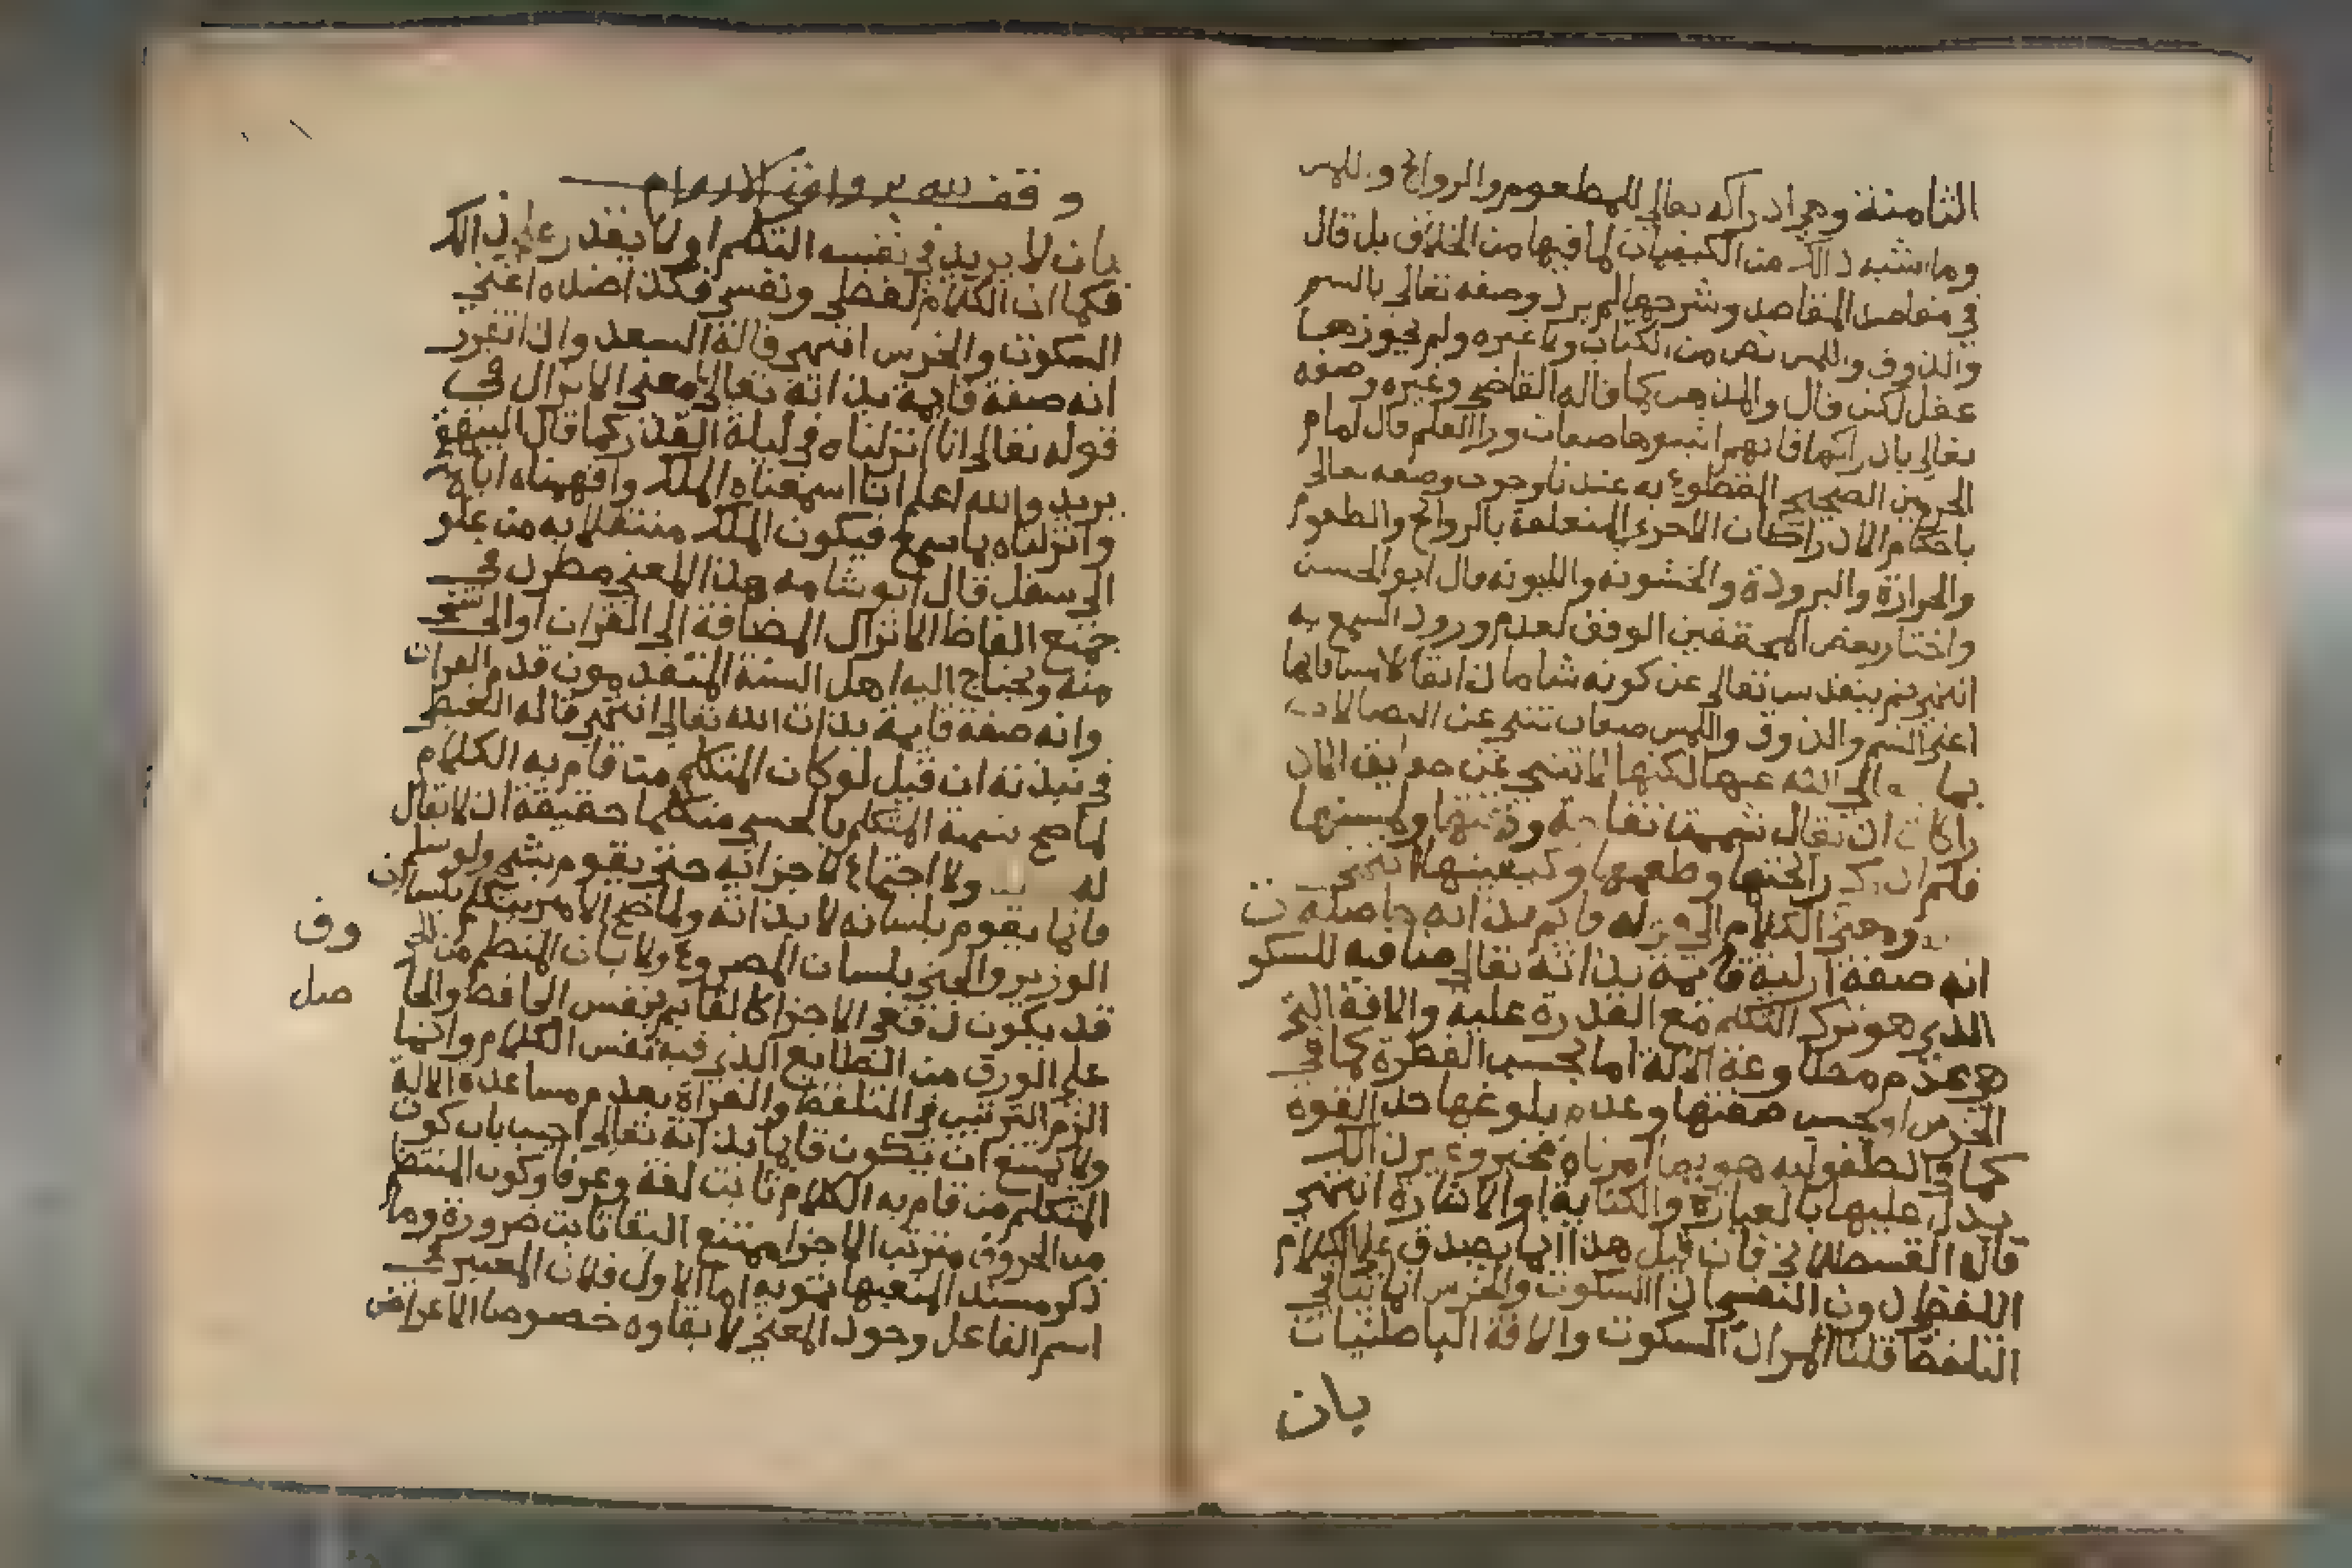 الثامنة وهي ادراكه تعالى للمطعوم والروايح واللمس
وما اشبه ذالك من الكيفيات لما فيها من الخلاف بل قال
في مقاصد المقاصد وشرحها لم يرد وصفه تعالى بالشم
والذوق واللمس نص من الكتاب ولا غيره ولم يجوزهما
عقل لكن قال والمذهب كما قاله القاضي وغيره وصفه
تعالى بادراكها فانهم اثبتوها صفات ورا العلم قال امام
الحرمين الصحيح المقطوع به عندنا وجوب وصفه تعالى
باحكام الادراكات الاخرى المتعلقة بالروايح والطعوم
والحرارة والبرودة والخشونة والليونة قال ابو الحسن
واختار بعض المحققين الوقف لعدم ورود السمع به
انتهى ثم يتقدس تعالى عن كونه شاما ذايقا لامسا فانها
اعني الشم والذوق واللمس صفات تنبي عن اتصالات
بها تعالى الله عنها لكنها لا تنبي عن حقايق الاد
راكات ان تقال شممت تفاحة وذقتها ولمستها
فلم ادرك رايحتها وطعمها وكيفيتها انتهى
ومعنى الكلام قايم بذاته حاصله
انه صفة ازلية قايمة بذاته تعالى منافية للسكو ت
الذي هو ترك التكلم مع القدرة عليه والافة التي
هو عدم مطاوعة الالة اما بحسب الفطرة كما في
الخرس او بحسب ضعفها وعدم بلوغها حد القوة
كما في الطفولية هو بها امرناه مخبر وغير ذالك
يدل عليها بالعبارة والكتابة او الاشارة انتهى
قاله القسطلاني فان قيل هذا انما يصدق على الكلام
اللفظي دون النفسي ان السكوت والخرس انما ينافي
التلفظ قلنا المراد السكوت والافة الباطنيات
بان
وقف لله برواق الاروام
بان لا يريد في نفسه التكلم او لا يقدر على ذالك
فكما ان الكلام لفظي ونفسي فكذا ضده اعني
السكوت والخرس انتهى قاله السعد واذا تقرر
انه صفة قايمة بذاته تعالى معنى الانزال في
قوله تعالى انا انزلناه في ليلة القدر كما قال البيهقي
يريد والله اعلم انا اسمعناه الملك وافهمناه اياه
وانزلناه بما سمع فيكون الملك منتقلا به من علو
الى سفل قال ابو شامه هذا المعنى مطرد في
جميع الفاظ الانزال المضافة الى القران او الى شي
منه ويحتاج اليه اهل السنة المتقدمون قدم القران
وانه صفة قايمة بذات الله تعالى انتهى قاله الغيطي
في نبذته ان قيل لو كان المتكلم من قام به الكلام
لما صح تسمية المتكلم بالحسي متكلما حقيقة اذ لا تقال
له ولا اجتماع لاجزايه حتى يقوم بشي ولو سلم
فانما يقوم بلسانه لا بذاته ولما صح الامر يتكلم بلسان
الوزير والجني بلسان المصروع ولا بان المنظم من الحر
وف
قد يكون دفعي الاجزا كالقايم بنفس الحافظ والحا
صل
على الورق من الطابع الذي فيه نفس الكلام وانما
الزم الترتيب في التلفظ والقراة بعدم مساعدة الالة
ولا يمتنع ان يكون قايما بذاته تعالى اجيب بان كون
المتكلم من قام به الكلام ثابت لغة وعرفا وكون المنتظ
من الحروف مترتب الاجزا ممتنع البقا ثابت ضرورة وما
ذكر مسند المنعيها تنويه اما الاول فلان المعبر في
اسم الفاعل وجود المعنى لا بقاوه خصوصا الاعراض